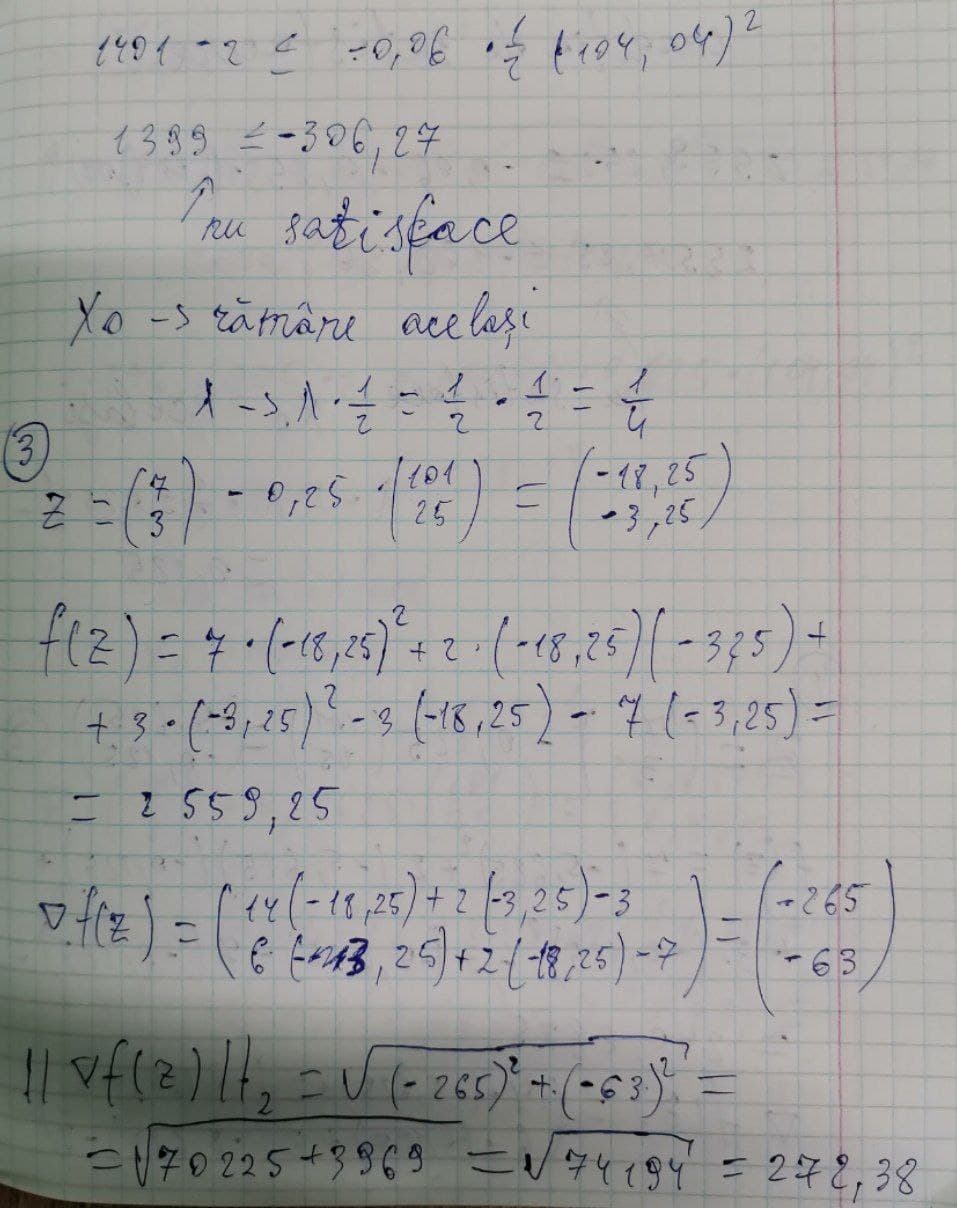 1401 - 2 ≤ -0,06 · 1/2 (104,04)²
1399 ≤ -306,27
↑ nu satisface
X0 → rămâne același
λ → λ · 1/2 = 1/2 · 1/2 = 1/4
③
z = (7 3) - 0,25 · (101 25) = (-18,25 -3,25)
f(z) = 7 · (-18,25)² + 2 · (-18,25)(-3,25) +
+ 3 · (-3,25)² - 3 (-18,25) - 7 (-3,25) =
= 2559,25
∇f(z) = (14(-18,25) + 2(-3,25) - 3 6(-3,25) + 2(-18,25) - 7) = (-265 -63)
||∇f(z)||₂ = √(-265)² + (-63)² =
= √70225 + 3969 = √74194 = 272,38